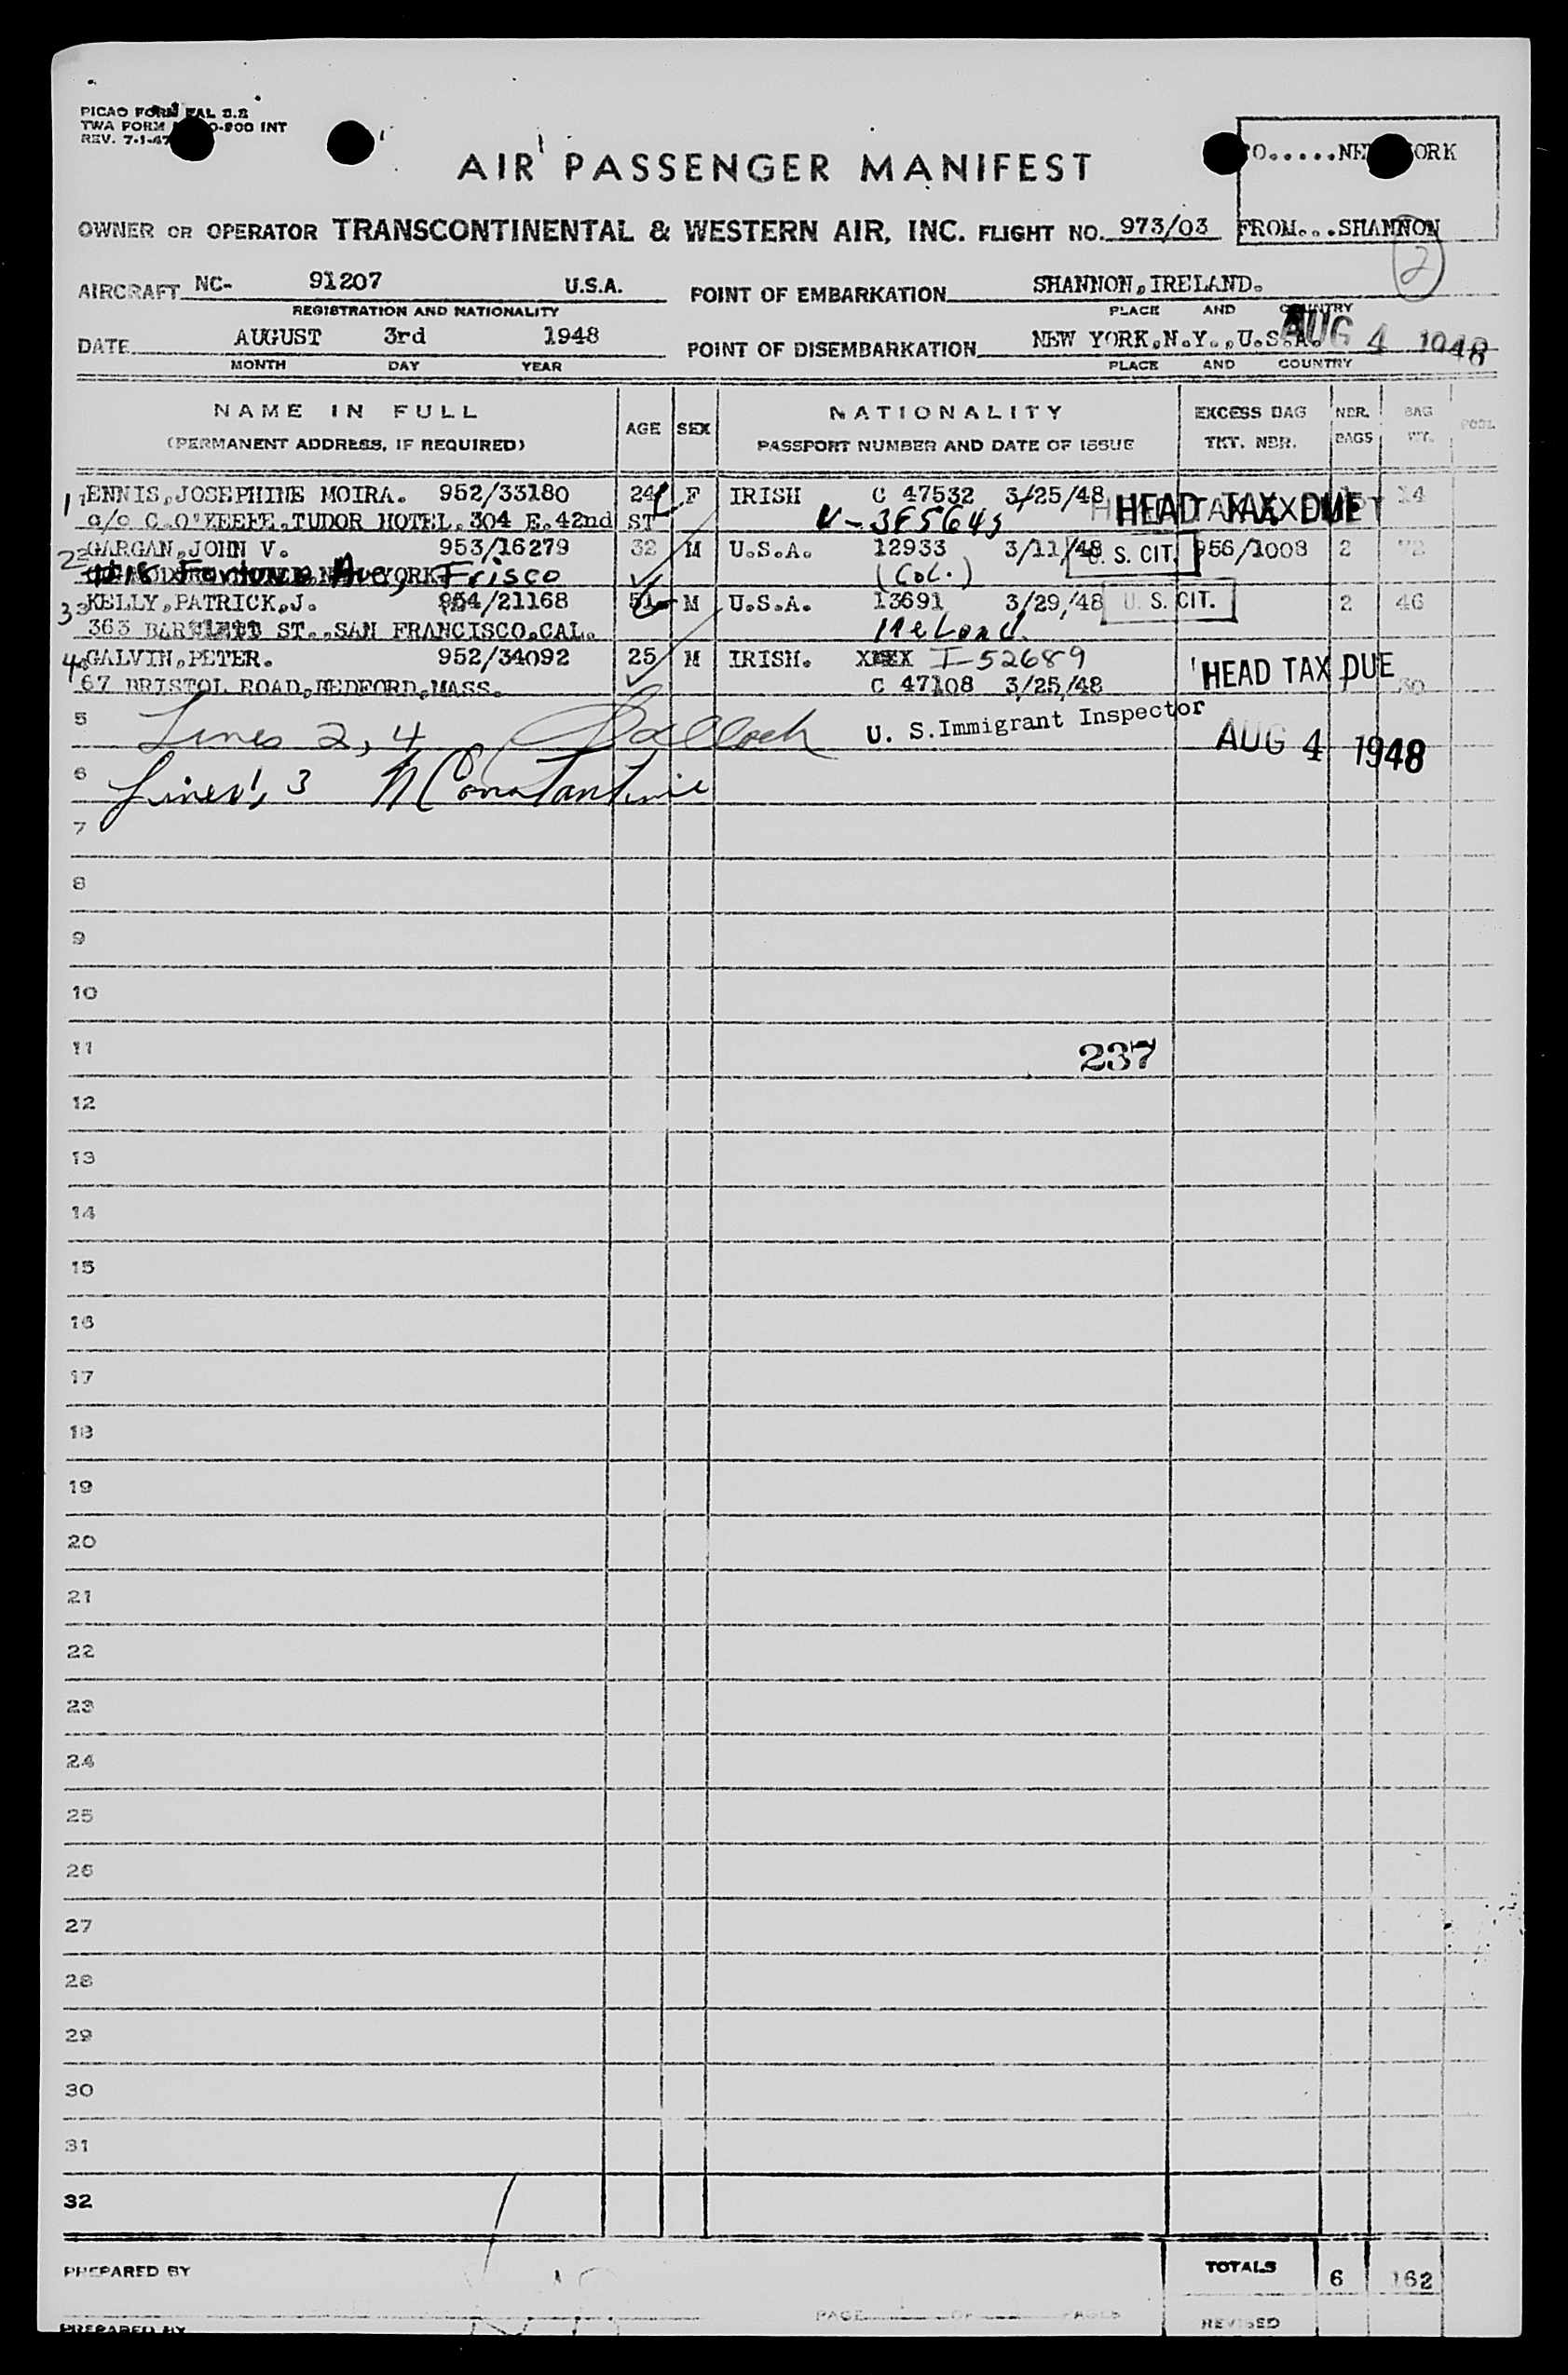 PICAO FORM FAL 2.2
TWA FORM 0-900 INT
REV. 7-1-47
AIR PASSENGER MANIFEST
O.....NEW YORK
OWNER OR OPERATOR TRANSCONTINENTAL & WESTERN AIR, INC. FLIGHT NO. 973/03
FROM...SHANNON
2
AIRCRAFT NC- 91207 U.S.A. POINT OF EMBARKATION SHANNON,IRELAND.
REGISTRATION AND NATIONALITY PLACE AND COUNTRY
DATE AUGUST 3rd 1948 POINT OF DISEMBARKATION NEW YORK,N.Y.,U.S.A. AUG 4 1948
MONTH DAY YEAR PLACE AND COUNTRY
NAME IN FULL AGE SEX NATIONALITY EXCESS BAG NBR. BAG
(PERMANENT ADDRESS, IF REQUIRED) PASSPORT NUMBER AND DATE OF ISSUE TKT. NBR. BAGS WT.
1 ENNIS,JOSEPHINE MOIRA. 952/33180 24 F IRISH C 47532 3/25/48 HEAD TAX DUE 14
c/o C.O'KEEFE,TUDOR HOTEL,304 E.42nd ST
2 GARGAN,JOHN V. 953/16279 32 M U.S.A. 12933 3/11/48 U. S. CIT. 956/1008 2 72
Fortuna Ave, Frisco (Col.)
3 KELLY,PATRICK,J. 954/21168 51 M U.S.A. 13691 3/29/48 U. S. CIT. 2 46
363 BARTLETT ST.,SAN FRANCISCO,CAL. Ireland.
4 GALVIN,PETER. 952/34092 25 M IRISH. I-52689 HEAD TAX DUE
67 BRISTOL ROAD,BEDFORD,MASS. C 47108 3/25/48 1 30
5 Lines 2, 4 U. S. Immigrant Inspector AUG 4 1948
6 Lines 1, 3 N Constantine
7
8
9
10
11 237
12
13
14
15
16
17
18
19
20
21
22
23
24
25
26
27
28
29
30
31
32
PREPARED BY TOTALS 6 162
PAGE OF PAGES REVISED
PREPARED BY